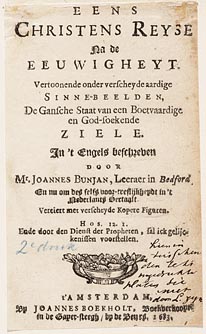 EENS
CHRISTENS REYSE
Na de
EEUWIGHEYT.
Vertoonende onder verscheyde aardige
SINNE-BEELDEN,
De Gansche Staat van een Boetvaardige
en God-soekende
ZIELE.
In 't Engels beschreven
DOOR
Mr. JOANNES BUNJAN, Leeraer in Bedford
En nu om des selfs voor-treflijkheydt in 't
Nederlants Vertaalt.
Verciert met verscheyde Kopere Figuren.
Hos. 12. v.
Ende door den Dienst der Propheten, sal ick gelijc-
kenissen voorstellen.
2e druk
t'AMSTERDAM,
By JOANNES BOEKHOLT, Boekverkooper
in de Gaper-steegh, by de Beurs. 1683.